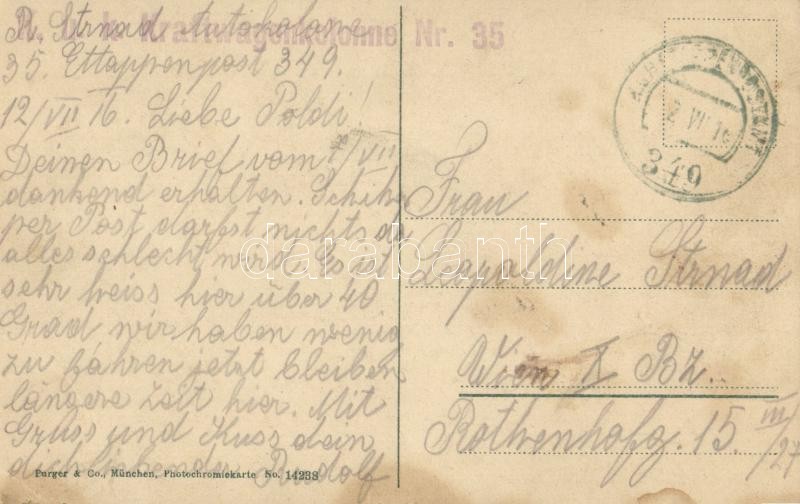 K. u. k. Kraftwagenkolonne Nr. 35
R. Strnad Autokolone
35. Ettappenpost 349.
12/VII 16. Liebe Poldi!
Deinen Brief vom 7/VII
dankend erhalten. Schiken
per Post darfst nichts da
alles schlecht wird. Es ist
sehr heiss hier über 40
Grad wir haben wenig
zu fahren jetzt bleiben
längere Zeit hier. Mit
Gruss und Kuss dein
dich liebender Rudolf
Purger & Co., München, Photochromiekarte No. 14238
349
Frau
Leopoldine Strnad
Wien X Bz.
Rothenhofg. 15. III/27
darabanth